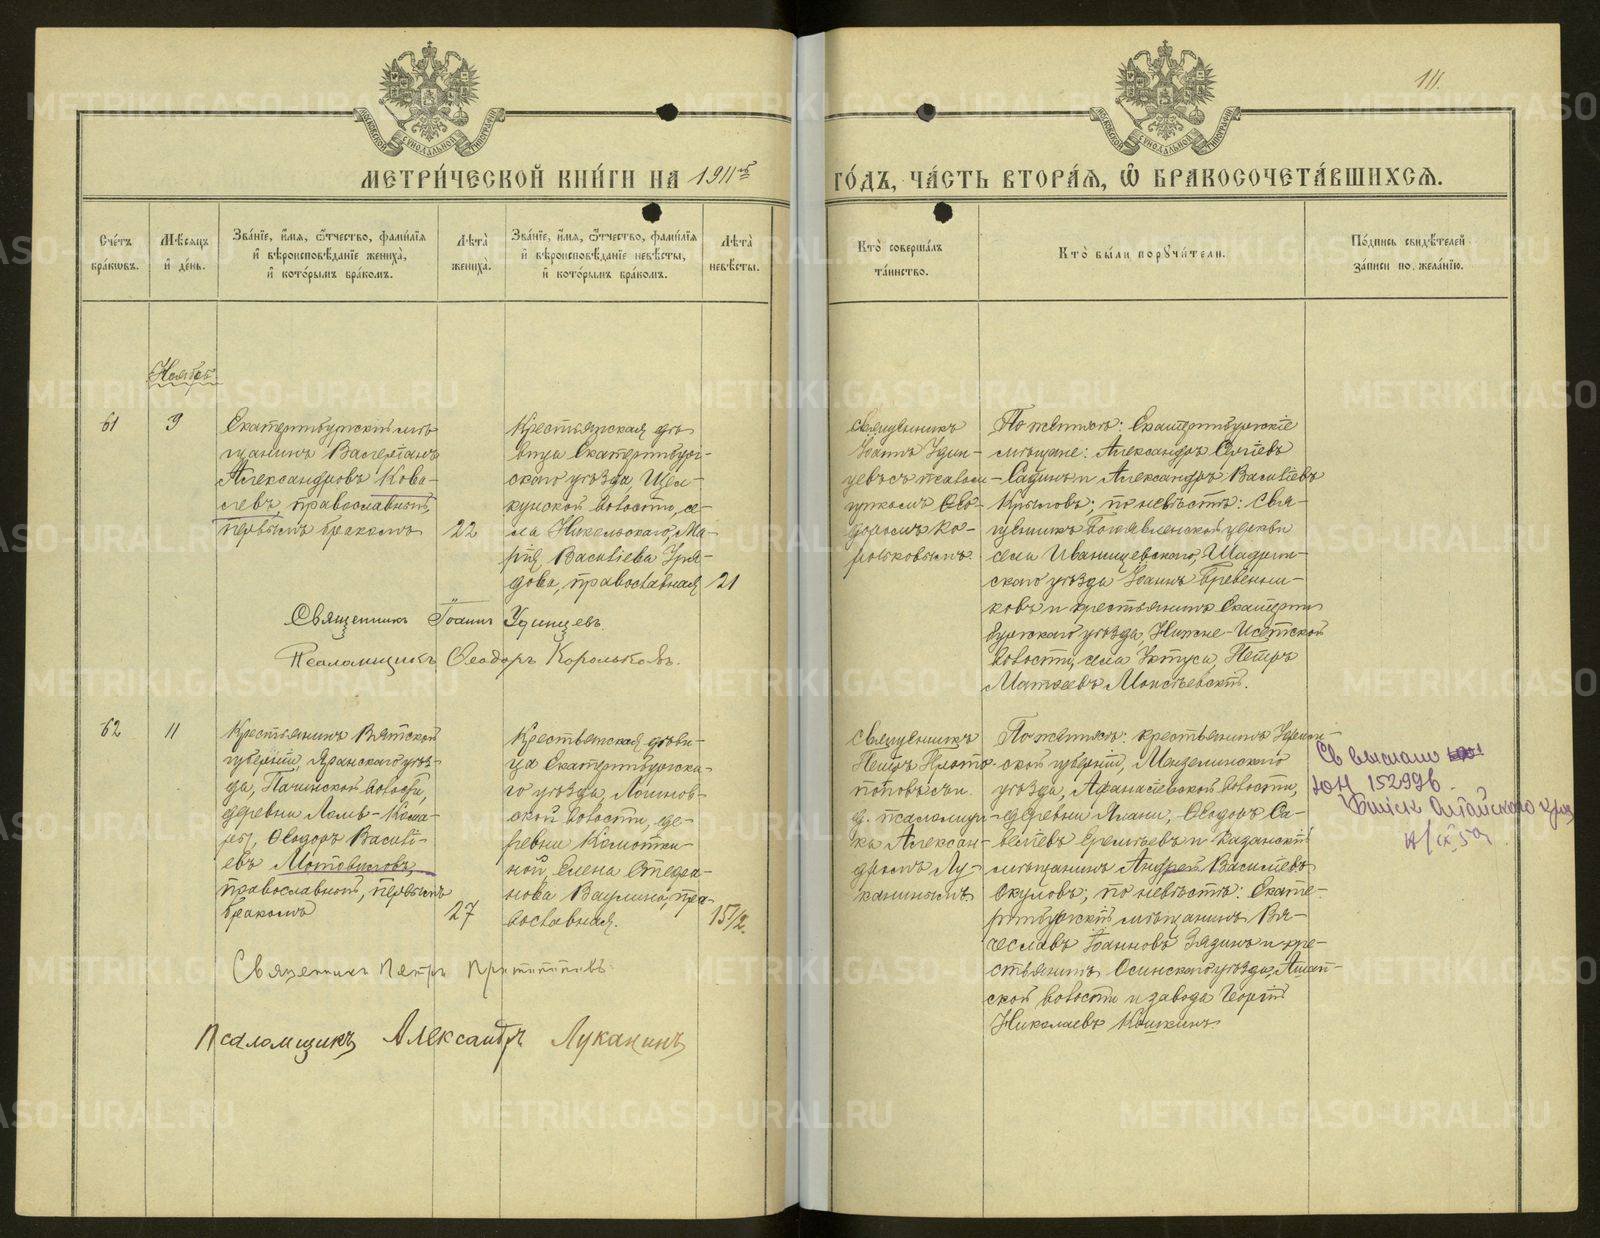 14.
МЕТРИ́ЧЕСКОЙ КНИ́ГИ НА 1911й
ГО́ДЪ, ЧА́СТЬ ВТОРА́Я, Ѿ БРАКОСОЧЕТА́ВШИХСЯ.
Сче́тъ бра́кωвъ.
Мѣ́сяцъ и҆ де́нь.
Зва́нїе, и҆́мя, ѻ҆́тчество, фамѝлїя
и҆ вѣроисповѣ́данїе жениха̀,
и҆ кото́рымъ бра́комъ.
Лѣ́та жениха̀.
Зва́нїе, и҆́мя, ѻ҆́тчество, фамѝлїя
и҆ вѣроисповѣ́данїе невѣ́сты,
и҆ кото́рымъ бра́комъ.
Лѣ́та невѣ́сты.
Кто̀ соверша́лъ
та́инство.
Кто̀ бы́ли порꙋчи́тели.
По́дпись свидѣ́телей
за́писи по жела́нїю.
Ноябрь
61
9
Екатеринбургскій мѣ-
щанинъ Валеріанъ
Александровъ Кова-
левъ, православный,
первымъ бракомъ
22
Крестьянская дѣ-
вица Екатеринбург-
скаго уѣзда, Щел-
кунской волости, се-
ла Никольскаго, Ма-
рія Васильева
православная
21
Священникъ
Іоаннъ Удин-
цевъ съ псалом-
щикомъ Ѳео-
доромъ Ко-
рольковымъ
По женихѣ: Екатеринбургскіе
мѣщане: Александръ Сергѣевъ
и Александръ Васильевъ
Крыловъ; по невѣстѣ: Свя-
щенникъ Богоявленской церкви
села Иванищевскаго, Шадрин-
скаго уѣзда Іоаннъ Бревенни-
ковъ и крестьянинъ Екатерин-
бургскаго уѣзда, Нижне-Исетской
волости, села Уктуса, Петръ
Матѳеевъ
Священникъ Іоаннъ Удинцевъ
Псаломщикъ Ѳеодоръ Корольковъ.
62
11
Крестьянинъ Вятской
губерніи, Яранскаго уѣз-
да, волости,
деревни
Ѳеодоръ Василь-
евъ Мотовиловъ,
православный, первымъ
бракомъ
27
Крестьянская дѣви-
ца Екатеринбургска-
го уѣзда, Логинов-
ской волости, де-
ревни
Елена Стефа-
нова Ваулина, пра-
вославная.
15 1/2.
Священникъ
Петръ
и
д. псаломщи-
ка Алексан-
дромъ Лу-
канинымъ
По женихѣ: крестьянинъ Уфим-
ской губерніи, Мензелинскаго
уѣзда, Афанасьевской волости,
деревни Ѳеодоръ Са-
вельевъ и Казанскій
мѣщанинъ Андрей Васильевъ
Окуловъ; по невѣстѣ: Екате-
ринбургскій мѣщанинъ Вя-
чеславъ Іоанновъ Зядинъ и кре-
стьянинъ Осинскаго уѣзда, Ашап-
ской волости и завода Георгій
Николаевъ Кошкинъ
Св выслан
ЮН 152996
Бийск Алтайского края
Священникъ Петръ
Псаломщикъ Александръ Луканинъ
METRIKI.GASO-URAL.RU